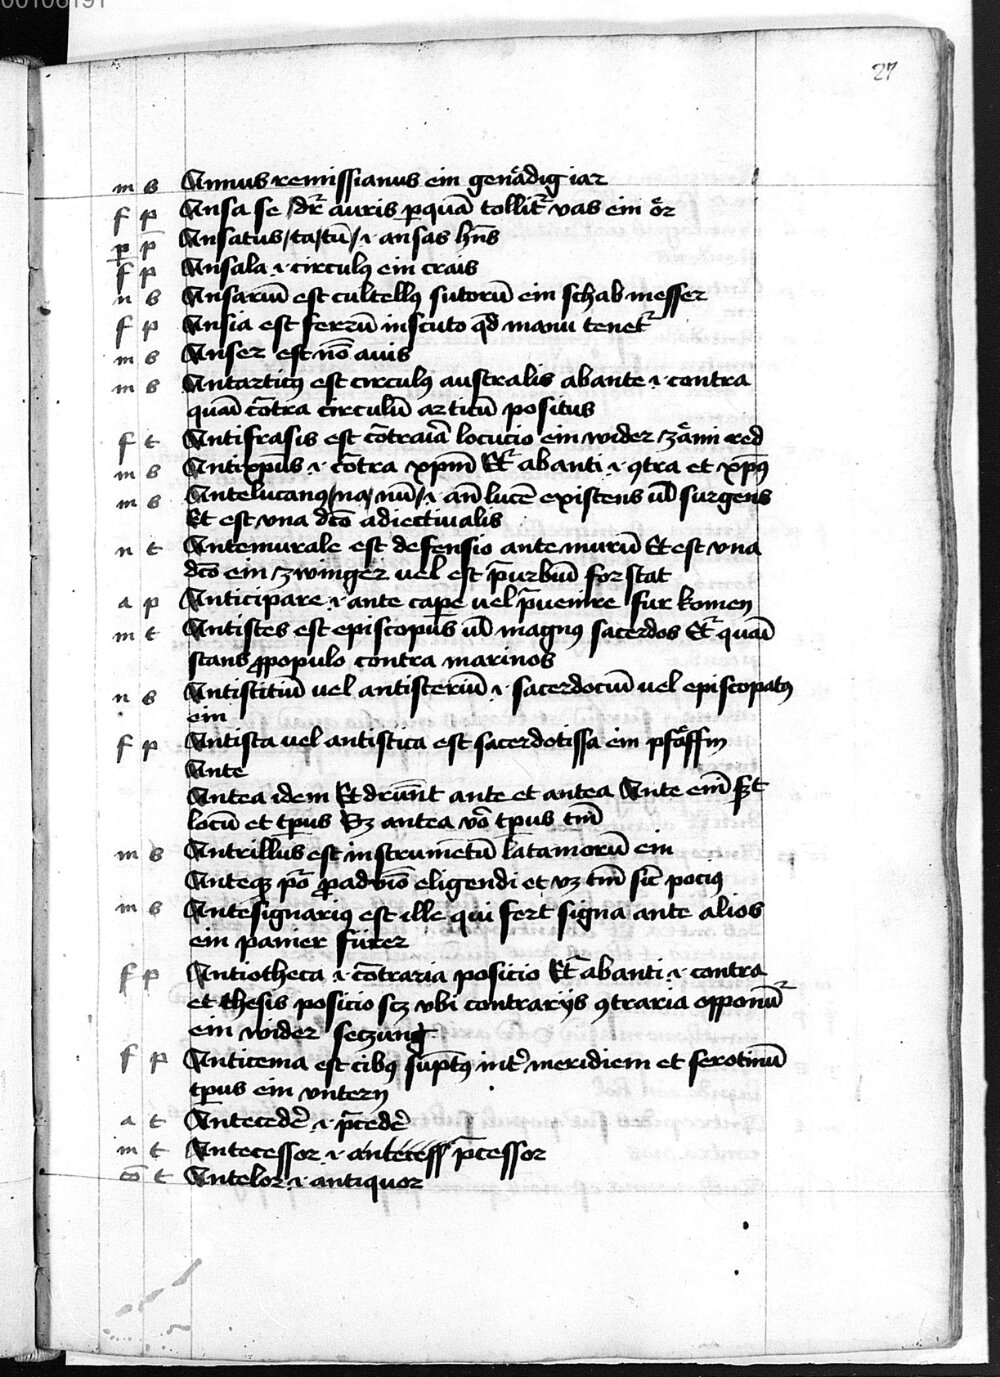 27
m s Annus remissianus ein genådig iar
f p Ansa se / dr̄ auris p quā tollit̄ vas ein ǒr
p p Ansatus / ta / tū / i · ansas hn̄s
f p Ansala · i · circulꝰ ein crais
n s Ansariū est cultellꝰ sutorū ein schab messer
f p Ansia est ferrū in scuto qd̄ manu tenet̄
m s Anser est nō avis
m s Antarticꝰ est circulꝰ australis ab ante · i · contra
quāi cōtra circulū articū positus
f t Antifrasis est cōtraiā locucio ein wider zåmi red
m s Antixpūs · i · cōtra xpm̄ Et̄ ab anti · i · ꝯtra et xpūs
m s Antelucanꝰ / na / nū / · i · an̄ lucē existens ul̄ surgens
Et est vna dc̄o adiectiualis
n t Antemurale est defensio ante murū Et est vna
dc̄o ein zwinger uel est p̄urbiū for stat
a p Anticipare · i · ante cape uel p̄uenire fur komen
m t Antistes est episcopus ul̄ magnꝰ sacerdos Et̄ quāi
stans ꝓ populo contra marinos
n s Antistitiū uel antisteriū · i · sacerdociū uel episcopatꝰ
ein
f p Antista uel antistica est sacerdotissa ein pfåffin
Ante
Antea idem Et drūnt ante et antea Ante em̄ s̄t
locū et tp̄us Sꝫ antea vō tp̄us tm̄
m s Antrillus est instrumētū latamorū ein
Anteqꝫ pō ꝓ aduīo eligendi et vꝫ tm̄ sic̄ pociꝰ
m s Antesignariꝰ est ille qui fert signa ante alios
ein panier fürer
f p Antiotheca · i · cōtraria posicio Et̄ ab anti · i · contra
et thesis posicio scꝫ vbi contrarijs ꝯtraria opponūt̄
ein wider seczung
f p Anticema est cibꝰ sūptꝰ int̄ meridiem et serotinū
tp̄us ein vntern
a t Antecedē · i · p̄cedē
m t Antecessor · i · antecess p̄cessor
cō t Antelor · i · antiquor